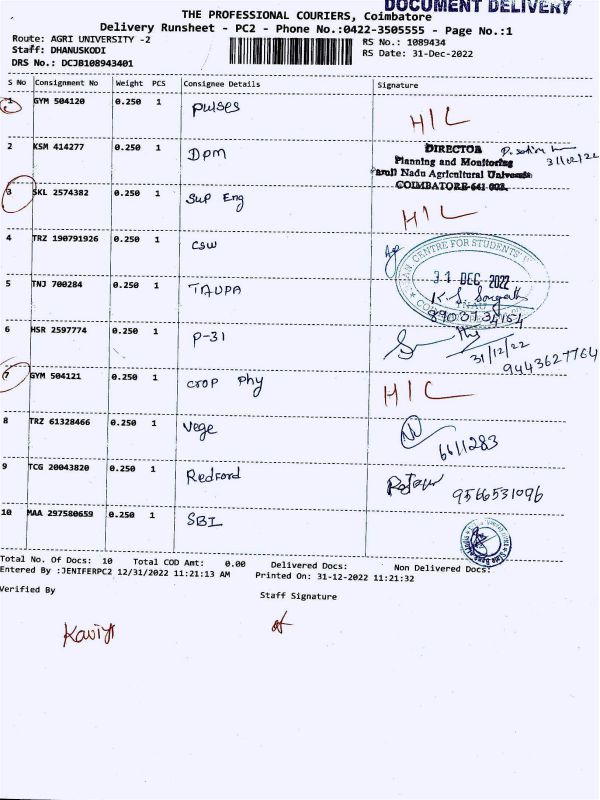 DOCUMENT DELIVERY
THE PROFESSIONAL COURIERS, Coimbatore
Delivery Runsheet - PC2 - Phone No.:0422-3505555 - Page No.:1
Route: AGRI UNIVERSITY -2
RS No.: 1089434
Staff: DHANUSKODI
RS Date: 31-Dec-2022
DRS No.: DCJB108943401
S No Consignment No Weight PCS Consignee Details Signature
1 GYM 504120 0.250 1 pulses H/C
2 KSM 414277 0.250 1 DPM
DIRECTOR
Planning and Monitoring
Tamil Nadu Agricultural University
COIMBATORE-641 003.
31/12/22
3 SKL 2574382 0.250 1 Sup Eng H/C
4 TRZ 190791926 0.250 1 CSW
CENTRE FOR STUDENTS'
31 DEC 2022
5 TNJ 700284 0.250 1 TAUPA
8903734164
6 HSR 2597774 0.250 1 P-31
31/12/22
9443627764
7 GYM 504121 0.250 1 crop phy H/C
8 TRZ 61328466 0.250 1 vege 6611283
9 TCG 20043820 0.250 1 Redford 9566531096
10 MAA 297580659 0.250 1 SBI
Total No. Of Docs: 10 Total COD Amt: 0.00 Delivered Docs: Non Delivered Docs:
Entered By :JENIFERPC2 12/31/2022 11:21:13 AM Printed On: 31-12-2022 11:21:32
Verified By Staff Signature
Kaviya